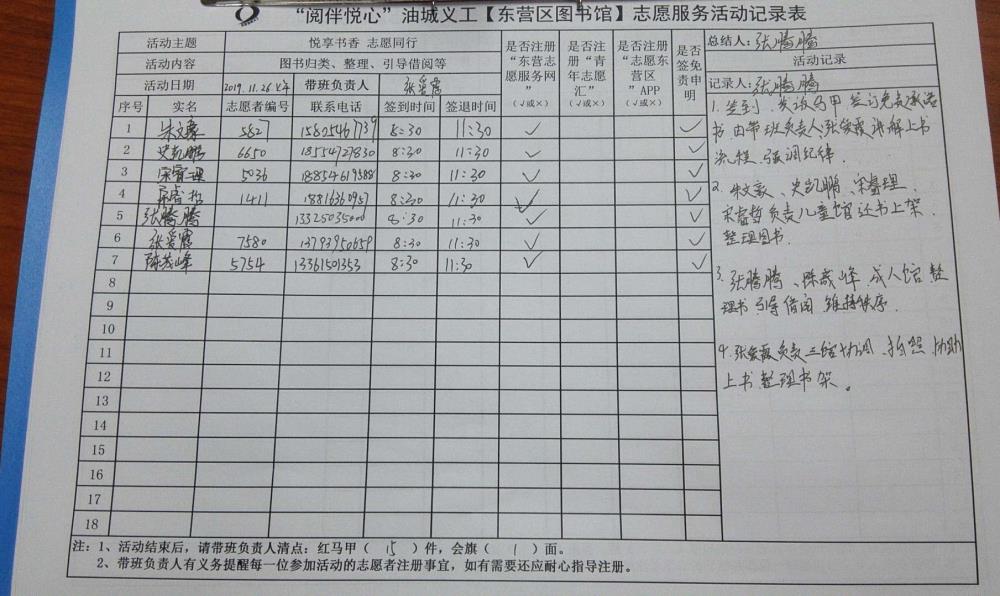 “阅伴悦心”油城义工【东营区图书馆】志愿服务活动记录表
活动主题 悦享书香 志愿同行
活动内容 图书归类、整理、引导借阅等
活动日期 2019.11.26上午 带班负责人 张爱霞
序号 实名 志愿者编号 联系电话 签到时间 签退时间
是否注册“东营志愿服务网” (√或×)
是否注册“青年志愿汇” (√或×)
是否注册“志愿东营区”APP (√或×)
是否签免责申明
总结人：张腾腾
活动记录
记录人：张腾腾
1 朱文豪 5827 15805467739 8:30 11:30 ✓ ✓
2 史凯鹏 6650 18554727830 8:30 11:30 ✓ ✓
3 宋睿理 5036 18854619588 8:30 11:30 ✓ ✓
4 宋睿哲 1411 18816360957 8:30 11:30 ✓ ✓
5 张腾腾 13325035000 8:30 11:30 ✓ ✓
6 张爱霞 7580 13793950659 8:30 11:30 ✓ ✓
7 陈茂峰 5754 13361501353 8:30 11:30 ✓ ✓
8
9
10
11
12
13
14
15
16
17
18
1. 签到、发放马甲 签订免责承诺
书 由带班负责人张爱霞讲解上书
流程、强调纪律.
2. 朱文豪、史凯鹏、宋睿理、
宋睿哲负责儿童馆还书上架.
整理图书.
3. 张腾腾、陈茂峰 成人馆 整
理书 引导借阅 维持秩序.
4. 张爱霞负责三馆协调、拍照 协助
上书整理书架。
注：1、活动结束后，请带班负责人清点：红马甲（ 15 ）件，会旗（ 1 ）面。
2、带班负责人有义务提醒每一位参加活动的志愿者注册事宜，如有需要还应耐心指导注册。